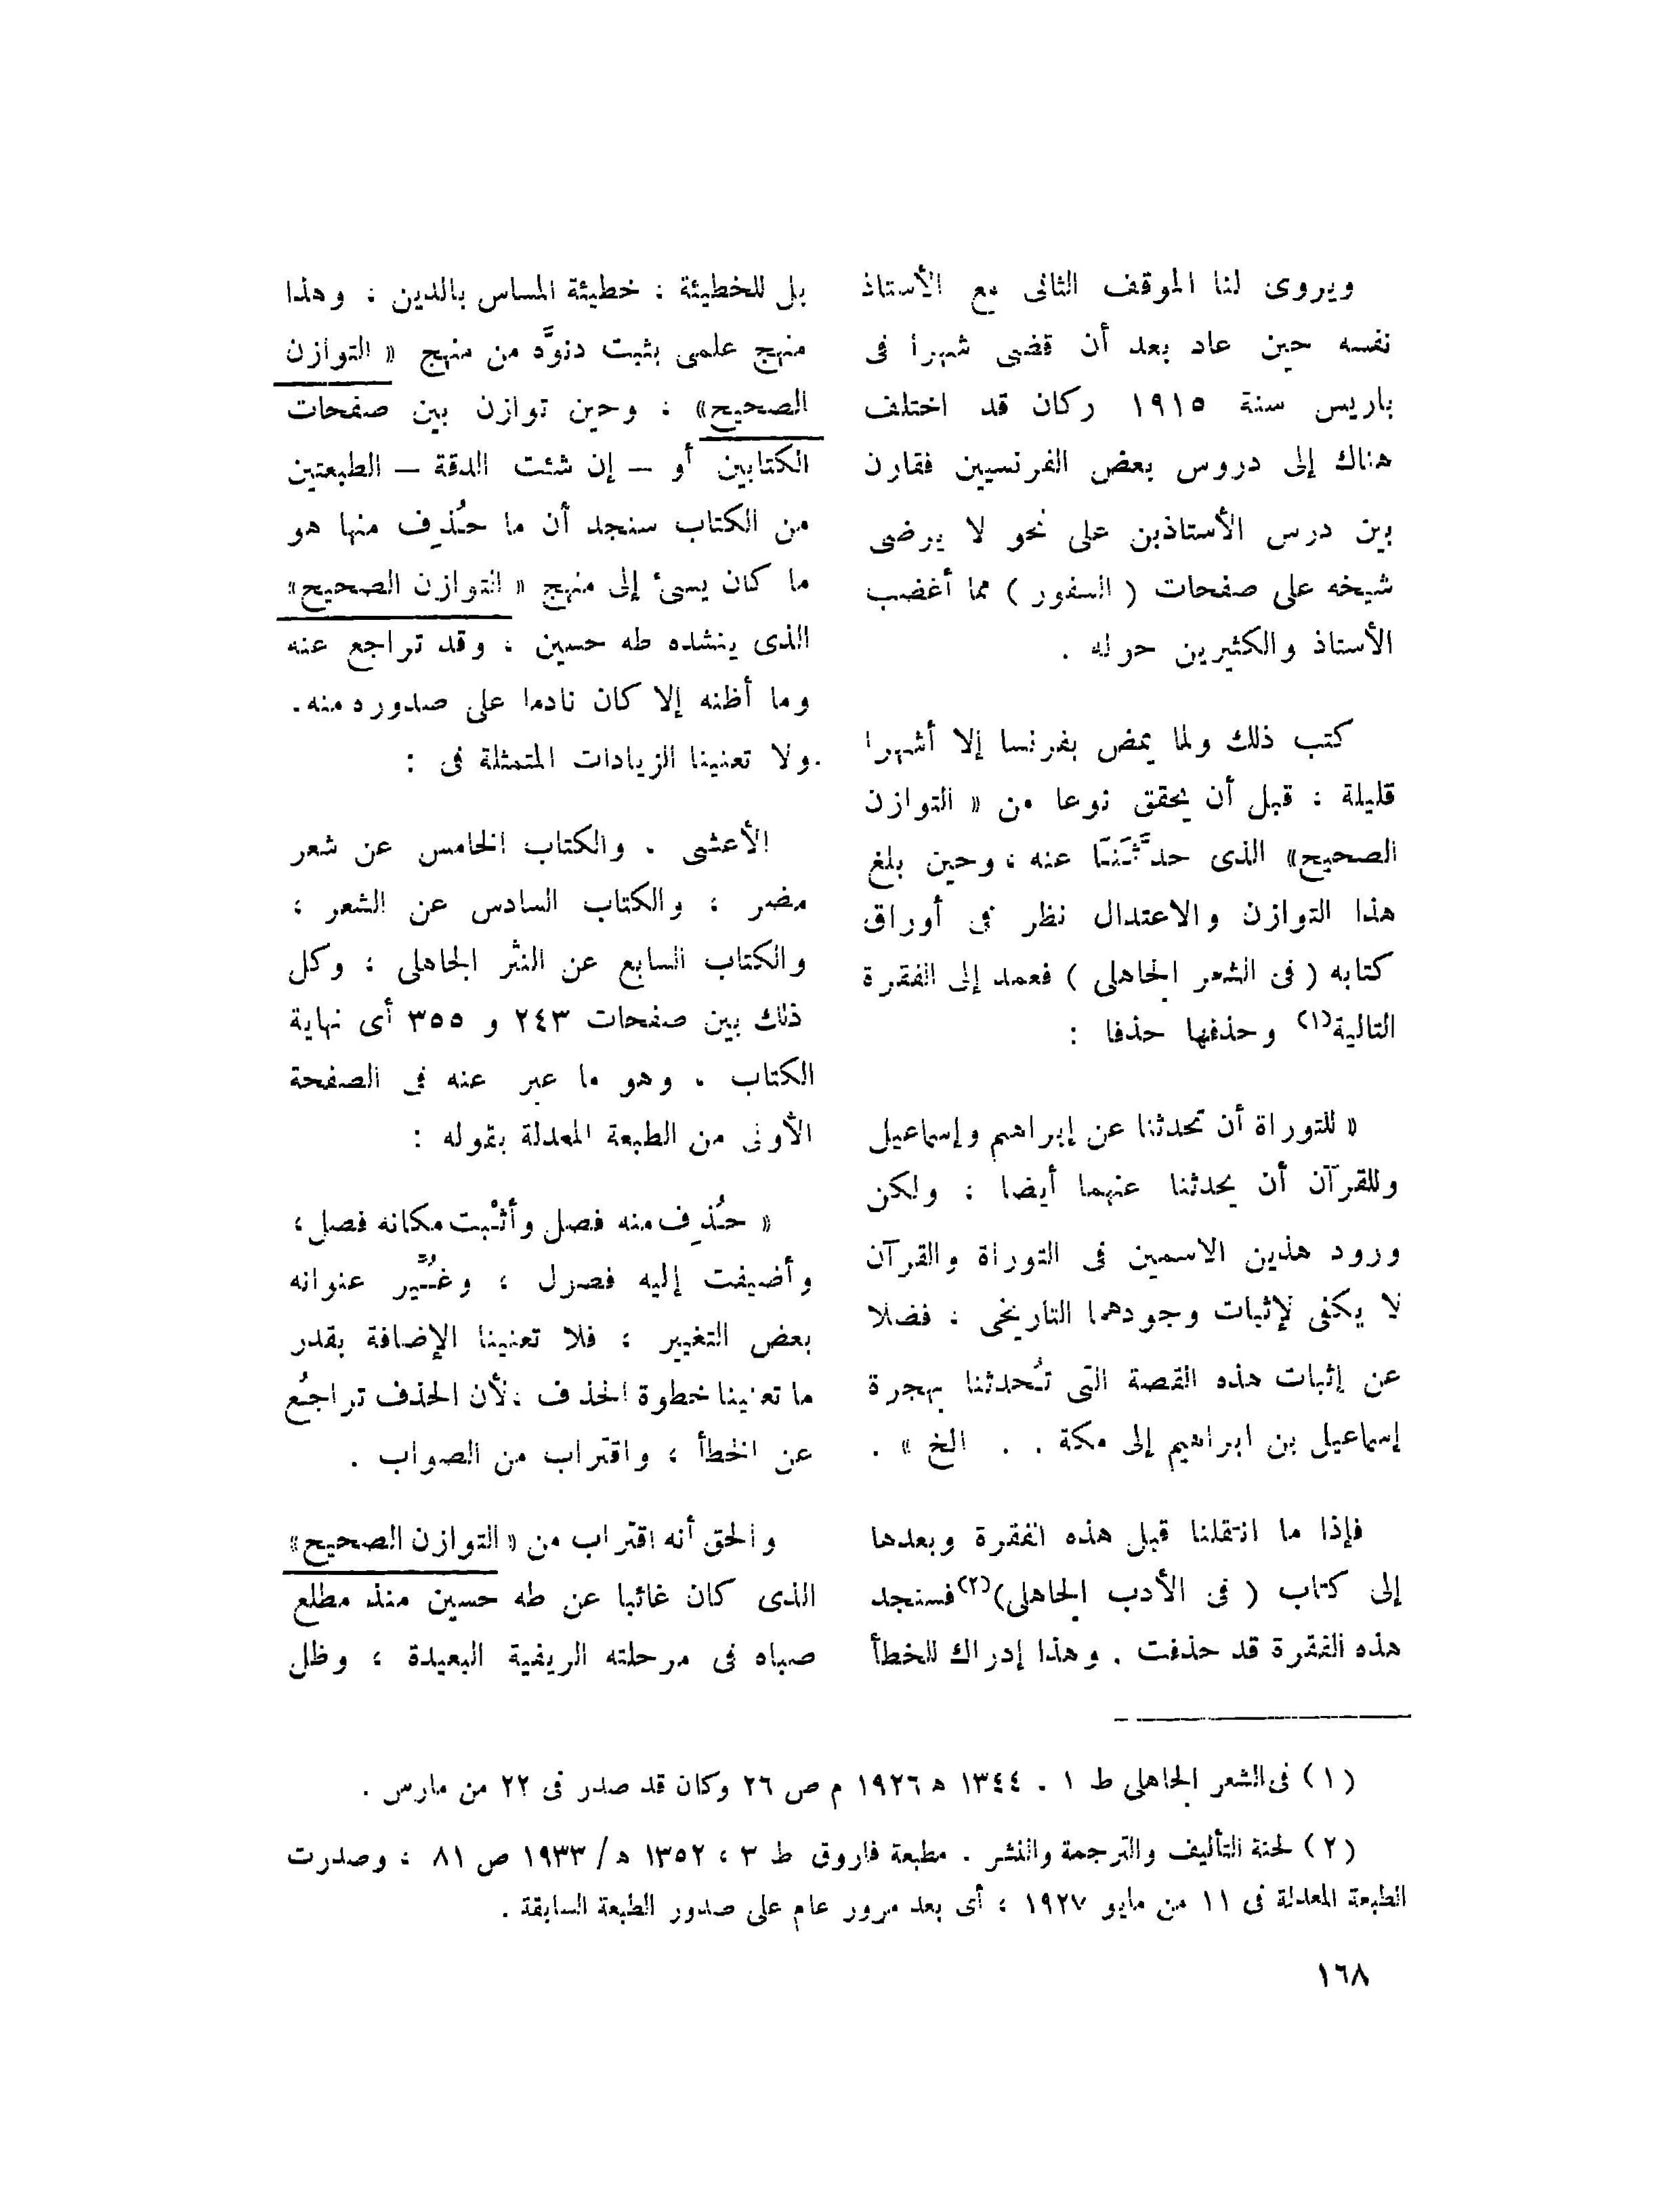 ويروى لنا الموقف الثانى مع الأستاذ
نفسه حين عاد بعد أن قضى شهرا فى
باريس سنة ١٩١٥ وكان قد اختلف
هناك إلى دروس بعض الفرنسيين فقارن
بين درس الأستاذين على نحو لا يرضى
شيخه على صفحات ( السفور ) مما أغضب
الأستاذ والكثيرين حوله .
كتب ذلك ولما يمض بفرنسا إلا أشهرا
قليلة ، قبل أن يحقق نوعا من « التوازن
الصحيح» الذى حدَّثَنَا عنه ، وحين بلغ
هذا التوازن والاعتدال نظر فى أوراق
كتابه ( فى الشعر الجاهلى ) فعمد إلى الفقرة
التالية(١) وحذفها حذفا :
« للتوراة أن تحدثنا عن إبراهيم وإسماعيل
وللقرآن أن يحدثنا عنهما أيضا ، ولكن
ورود هذين الاسمين فى التوراة والقرآن
لا يكفى لإثبات وجودهما التاريخى ، فضلا
عن إثبات هذه القصة التى تُحدثنا بهجرة
إسماعيل بن ابراهيم إلى مكة . . الخ » .
فإذا ما انتقلنا قبل هذه الفقرة وبعدها
إلى كتاب ( فى الأدب الجاهلى)(٢) فسنجد
هذه الفقرة قد حذفت . وهذا إدراك للخطأ
بل للخطيئة : خطيئة المساس بالدين ، وهذا
منهج علمى يثبت دنوَّه من منهج « التوازن
الصحيح» ، وحين توازن بين صفحات
الكتابين أو – إن شئت الدقة – الطبعتين
من الكتاب سنجد أن ما حُذِف منها هو
ما كان يسىء إلى منهج « التوازن الصحيح»
الذى ينشده طه حسين ، وقد تراجع عنه
وما أظنه إلا كان نادما على صدوره منه.
ولا تعنينا الزيادات المتمثلة فى :
الأعشى . والكتاب الخامس عن شعر
مضر ، والكتاب السادس عن الشعر ،
والكتاب السابع عن النثر الجاهلى ، وكل
ذلك بين صفحات ٢٤٣ و ٣٥٥ أى نهاية
الكتاب . وهو ما عبر عنه فى الصفحة
الأولى من الطبعة المعدلة بقوله :
« حُذِف منه فصل وأثْبت مكانه فصل ،
وأضيفت إليه فصول ، وغُيِّر عنوانه
بعض التغيير ، فلا تعنينا الإضافة بقدر
ما تعنينا خطوة الحذف ، لأن الحذف تراجُع
عن الخطأ ، واقتراب من الصواب .
والحق أنه اقتراب من « التوازن الصحيح»
الذى كان غائبا عن طه حسين منذ مطلع
صباه فى مرحلته الريفية البعيدة ، وظل
(١) فى الشعر الجاهلى ط ١ . ١٣٤٤ ه ١٩٢٦ م ص ٢٦ وكان قد صدر فى ٢٢ من مارس .
(٢) لجنة التأليف والترجمة والنشر . مطبعة فاروق ط ٣ ، ١٣٥٢ ه / ١٩٣٣ ص ٨١ ، وصدرت
الطبعة المعدلة فى ١١ من مايو ١٩٢٧ ، أى بعد مرور عام على صدور الطبعة السابقة .
١٦٨